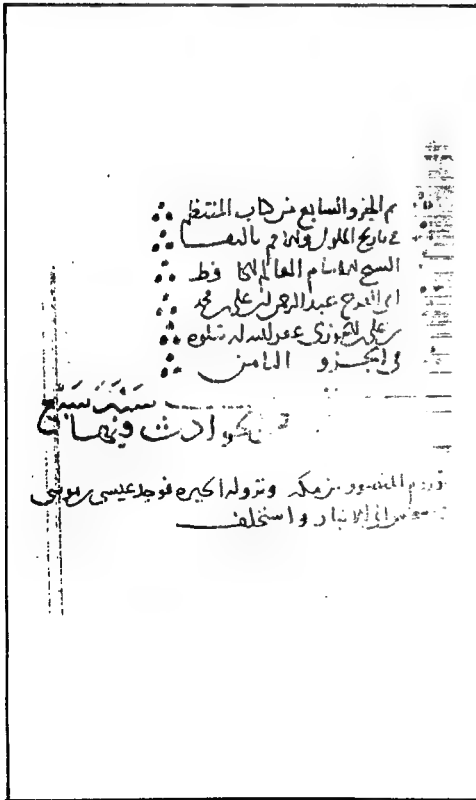 تم الجزو السابع من كتاب المنتظم
في تاريخ الملوك والامم تاليف
الشيخ الامام العالم الحافظ
ابي الفرج عبد الرحمن بن علي بن محمد
بن علي الجوزي غفر الله له يتلوه
في الجزو الثامن
سنة سبع
من الحوادث فيها
قدوم المنصور من مكة ونزوله الحيره فوجد عيسى بن موسى
الى الانبار واستخلف